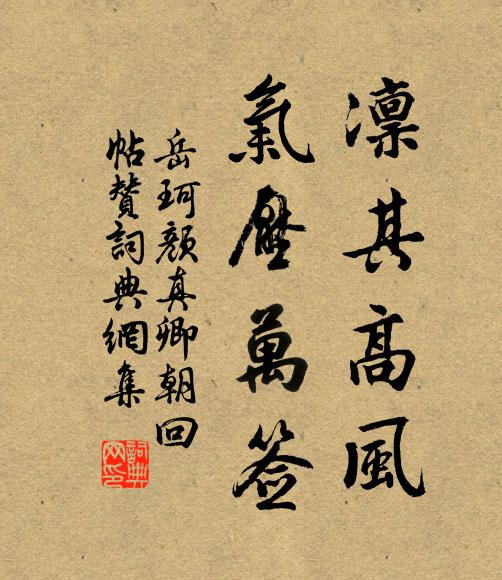 凛其高風
氣壓萬签
岳珂顏真卿朝回
帖贊詞典網集
詞典网印